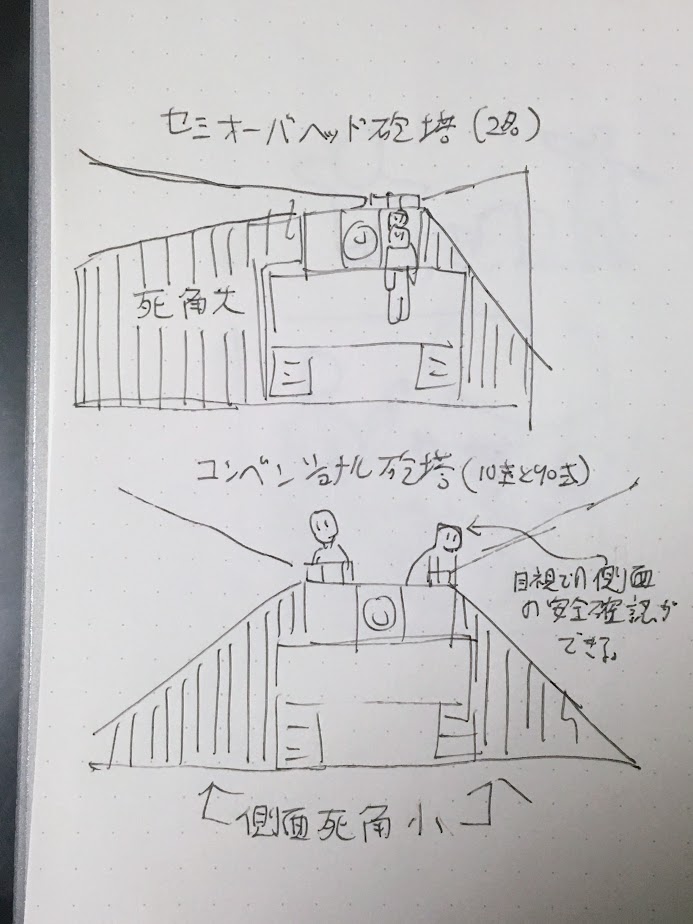 セミオーバヘッド砲塔(2名)
死角大
コンベンショナル砲塔(10式と90式)
目視での側面
の安全確認が
できる。
側面死角小